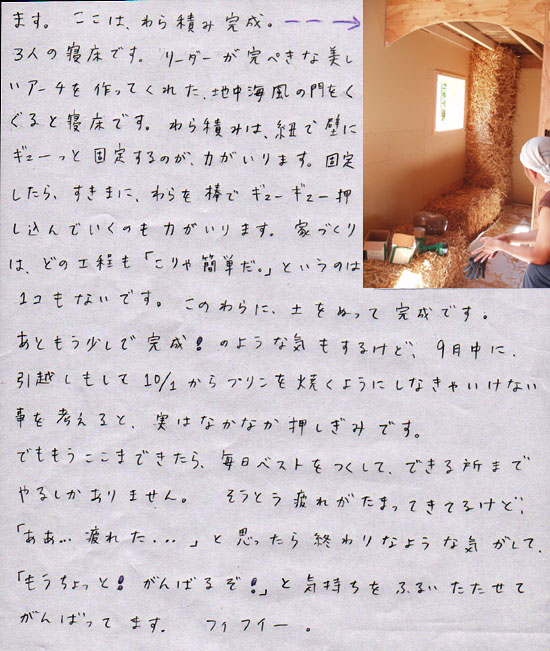 ます。ここは、わら積み完成。
3人の寝床です。リーダーが完ぺきな美し
いアーチを作ってくれた、地中海風の門をく
ぐると寝床です。わら積みは、紐で壁に
ギューっと固定するのが、力がいります。固定
したら、すきまに、わらを棒でギューギュー押
し込んでいくのも力がいります。家づくり
は、どの工程も「こりゃ簡単だ。」というのは
1コもないです。このわらに、土をぬって完成です。
あともう少しで完成!のような気もするけど、9月中に、
引越しもして10/1からプリンを焼くようにしなきゃいけない
事を考えると、実はなかなか押しぎみです。
でももうここまできたら、毎日ベストをつくして、できる所まで
やるしかありません。そうとう疲れがたまってきてるけど、
「ああ…疲れた・・・」と思ったら終わりなような気がして、
「もうちょっと!がんばるぞ!」と気持ちをふるいたたせて
がんばってます。フィフィー。